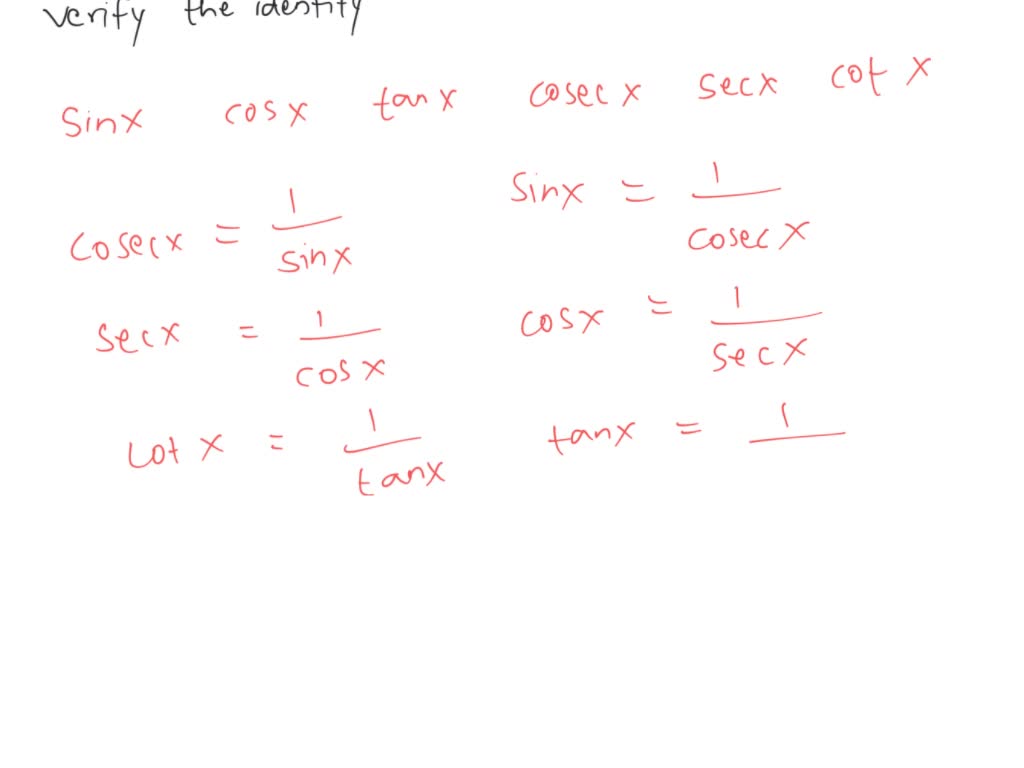 verify the identity
sinx cosx tanx cosecx secx cotx
cosecx = 1/sinx sinx = 1/cosecx
secx = 1/cosx cosx = 1/secx
cotx = 1/tanx tanx = 1/